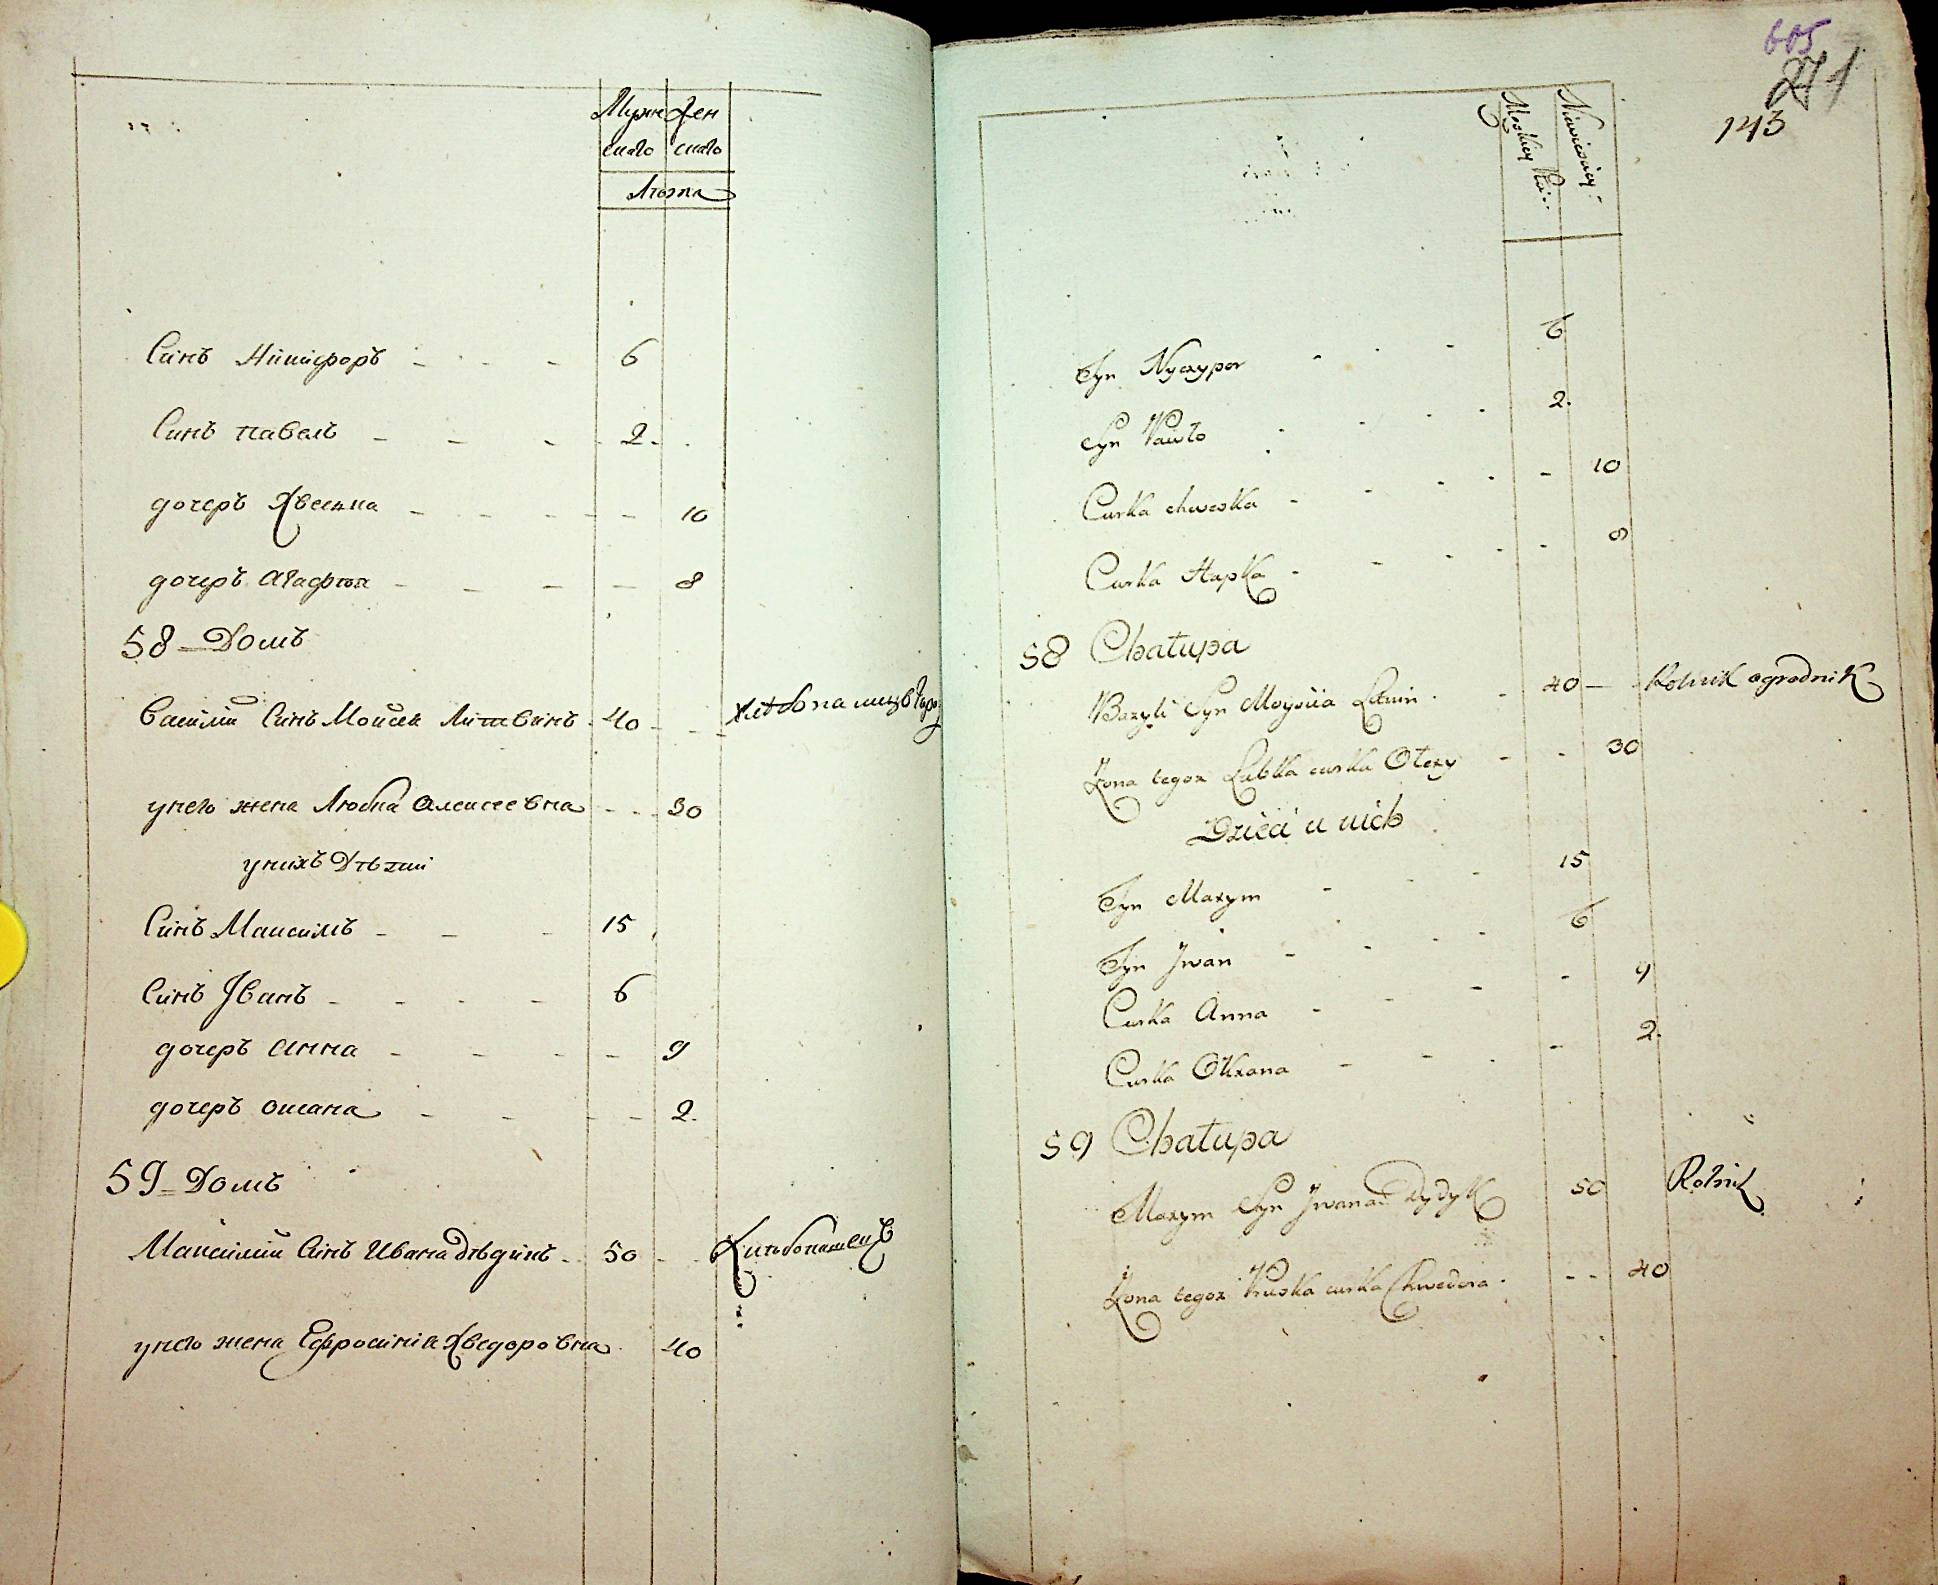 Муж Жен
скаго скаго
Лѣта
Синъ Никифоръ 6
Синъ павелъ 2
дочеръ Хвеська 10
дочеръ Агафия 8
58 Домъ
Василий Синъ Моисея Литвинъ 40
унего жена Любка Алексеевна 30
унихъ Дѣти
Синъ Максимъ 15
Синъ Іванъ 6
дочеръ Анна 9
дочеръ Оксана 2
59 Домъ
Максимий Синъ Ивана дѣдикъ 50 Хлѣбопашецъ
унего жена Ефросинія Хведоровна 40
605
271
143
Męskiey Niewiesciey
Syn Nyczypor 6
Syn Pawło 2
Curka chweska 10
Curka Hapka 8
58 Chałupa
Bazyli Syn Moysiia Litwin 40 Rolnik ogrodnik
Żona tegoż Lubka curka Ołexy 30
Dzieci u nich
Syn Maxym 15
Syn Jwan 6
Curka Anna 9
Curka Oxana 2
59 Chałupa
Maxym Syn Jwana Dydyk 50 Rolnik
Żona tegoż Pruska curka Chwedora 40